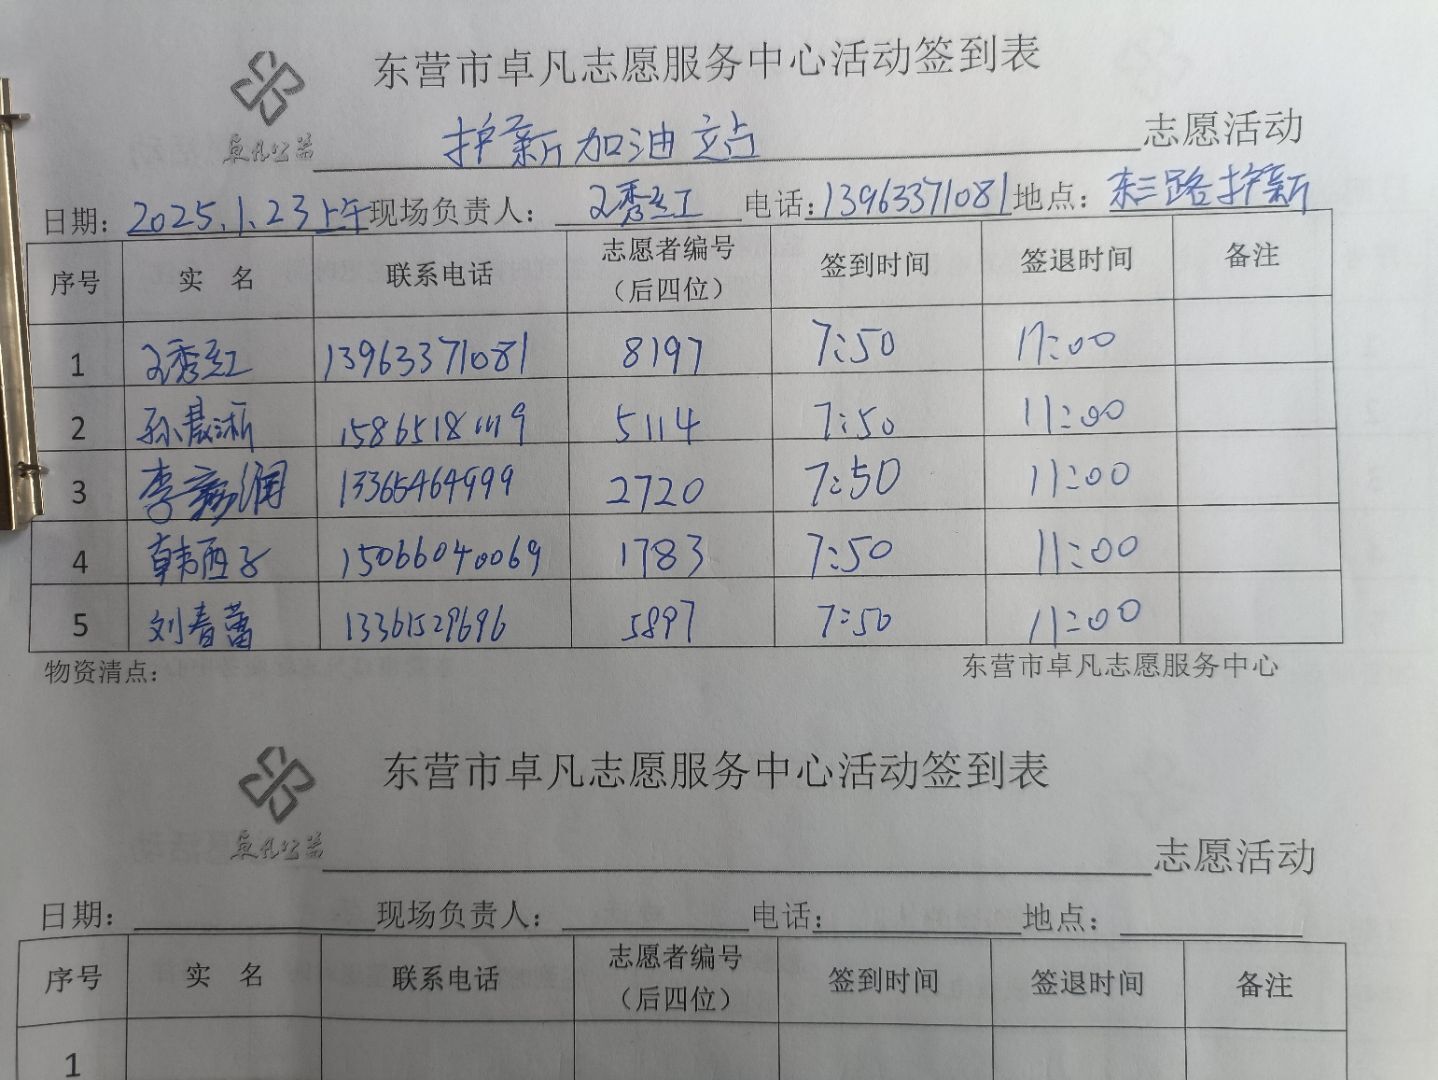 东营市卓凡志愿服务中心活动签到表
卓凡公益 护新加油站点 志愿活动
日期：2025.1.23上午 现场负责人：王秀红 电话：13963371081 地点：东三路护新
序号 实 名 联系电话 志愿者编号（后四位） 签到时间 签退时间 备注
1 王秀红 13963371081 8197 7:50 11:00
2 孙淅 15865181119 5114 7:50 11:00
3 李润 13365464999 2720 7:50 11:00
4 韩西子 15066040069 1783 7:50 11:00
5 刘春蕾 13361529696 5897 7:50 11:00
物资清点： 东营市卓凡志愿服务中心
东营市卓凡志愿服务中心活动签到表
卓凡公益 志愿活动
日期： 现场负责人： 电话： 地点：
序号 实 名 联系电话 志愿者编号（后四位） 签到时间 签退时间 备注
1